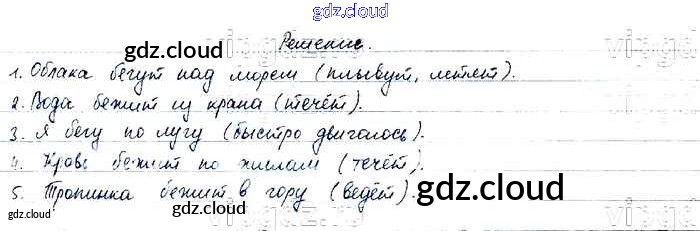 gdz.cloud
Решение.
gdz.cloud gdz.cloud
1. Облака бегут над морем (плывут, летят).
2. Вода бежит из крана (течёт).
gdz.cloud
3. Я бегу по лугу (быстро двигалось).
4. Кровь бежит по жилам (течёт).
5. Тропинка бежит в гору (ведёт).
gdz.cloud gdz.cloud gdz.cloud